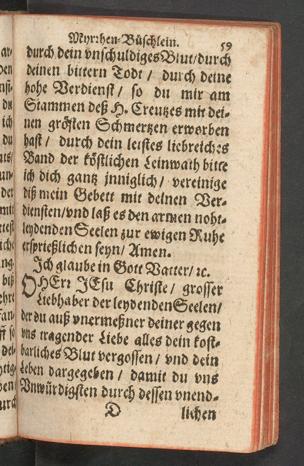 Myrrhen-Büschlein. 59
durch dein vnschuldiges Blut/durch
deinen bittern Todt / durch deine
hohe Verdienst / so du mir am
Stammen deß H. Creutzes mit dei-
nen grösten Schmertzen erworben
hast / durch dein letstes liebreiches
Band der köstlichen Leinwath bitte
ich dich gantz jnniglich / vereinige
diß mein Gebett mit deinen Ver-
diensten/vnd laß es den armen noht-
leydenden Seelen zur ewigen Ruhe
ersprießlichen seyn / Amen.
Jch glaube in Gott Vatter/ ꝛc.
O HErr JEsu Christe / grosser
Liebhaber der leydenden Seelen/
der du auß vnermeßner deiner gegen
vns tragender Liebe alles dein kost-
barliches Blut vergossen / vnd dein
Leben dargegeben / damit du vns
Vnwürdigsten durch dessen vnend-
D lichen